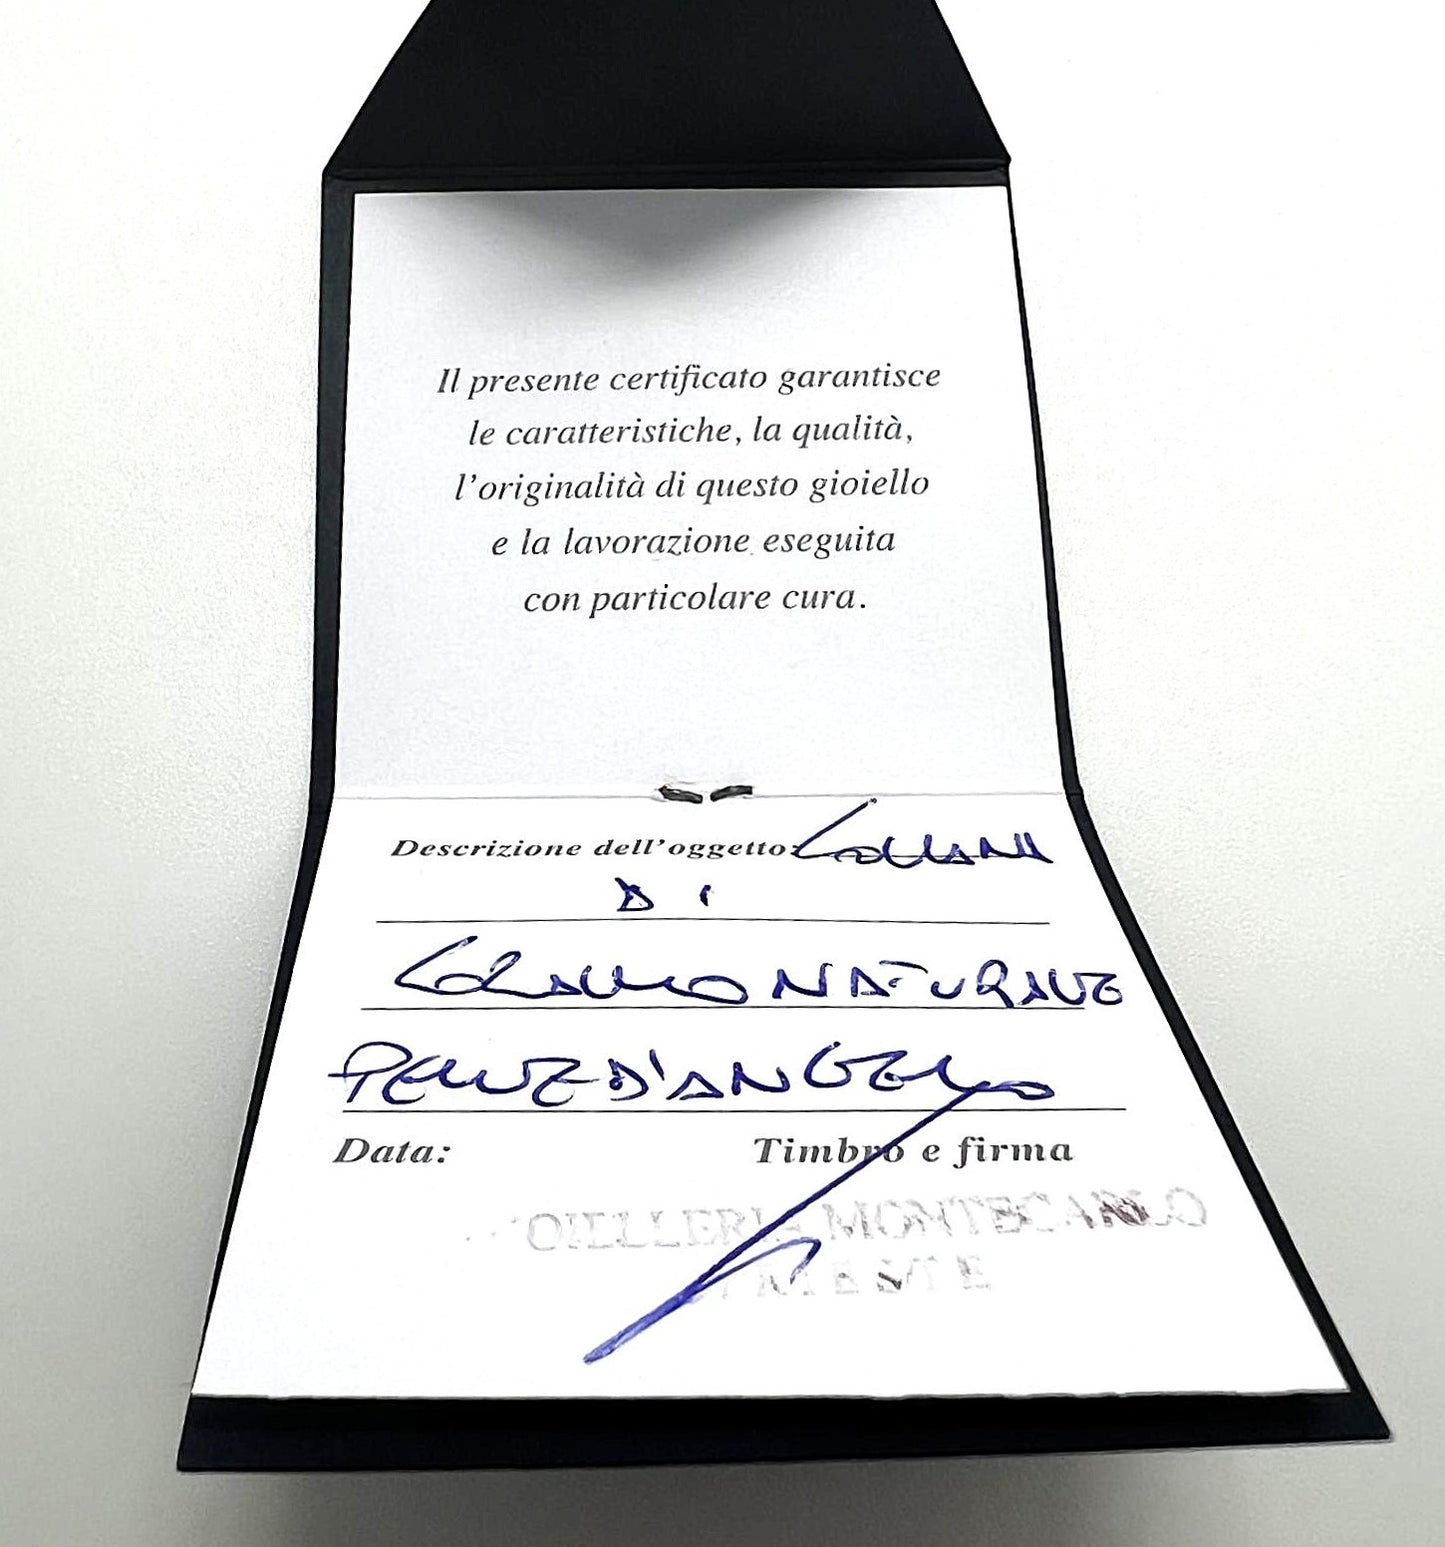 Il presente certificato garantisce
le caratteristiche, la qualità,
l'originalità di questo gioiello
e la lavorazione eseguita
con particolare cura.
Descrizione dell'oggetto: COLLANA
DI
CORALLO NATURALE
PELLE D'ANGELO
Data: Timbro e firma
OIELLERIA MONTECARLO